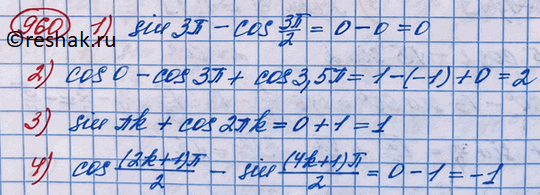 960 1) sin 3π − cos 3π/2 = 0 − 0 = 0
©reshak.ru
2) cos 0 − cos 3π + cos 3,5π = 1 − (−1) + 0 = 2
3) sin πk + cos 2πk = 0 + 1 = 1
4) cos (2k+1)π/2 − sin (4k+1)π/2 = 0 − 1 = −1